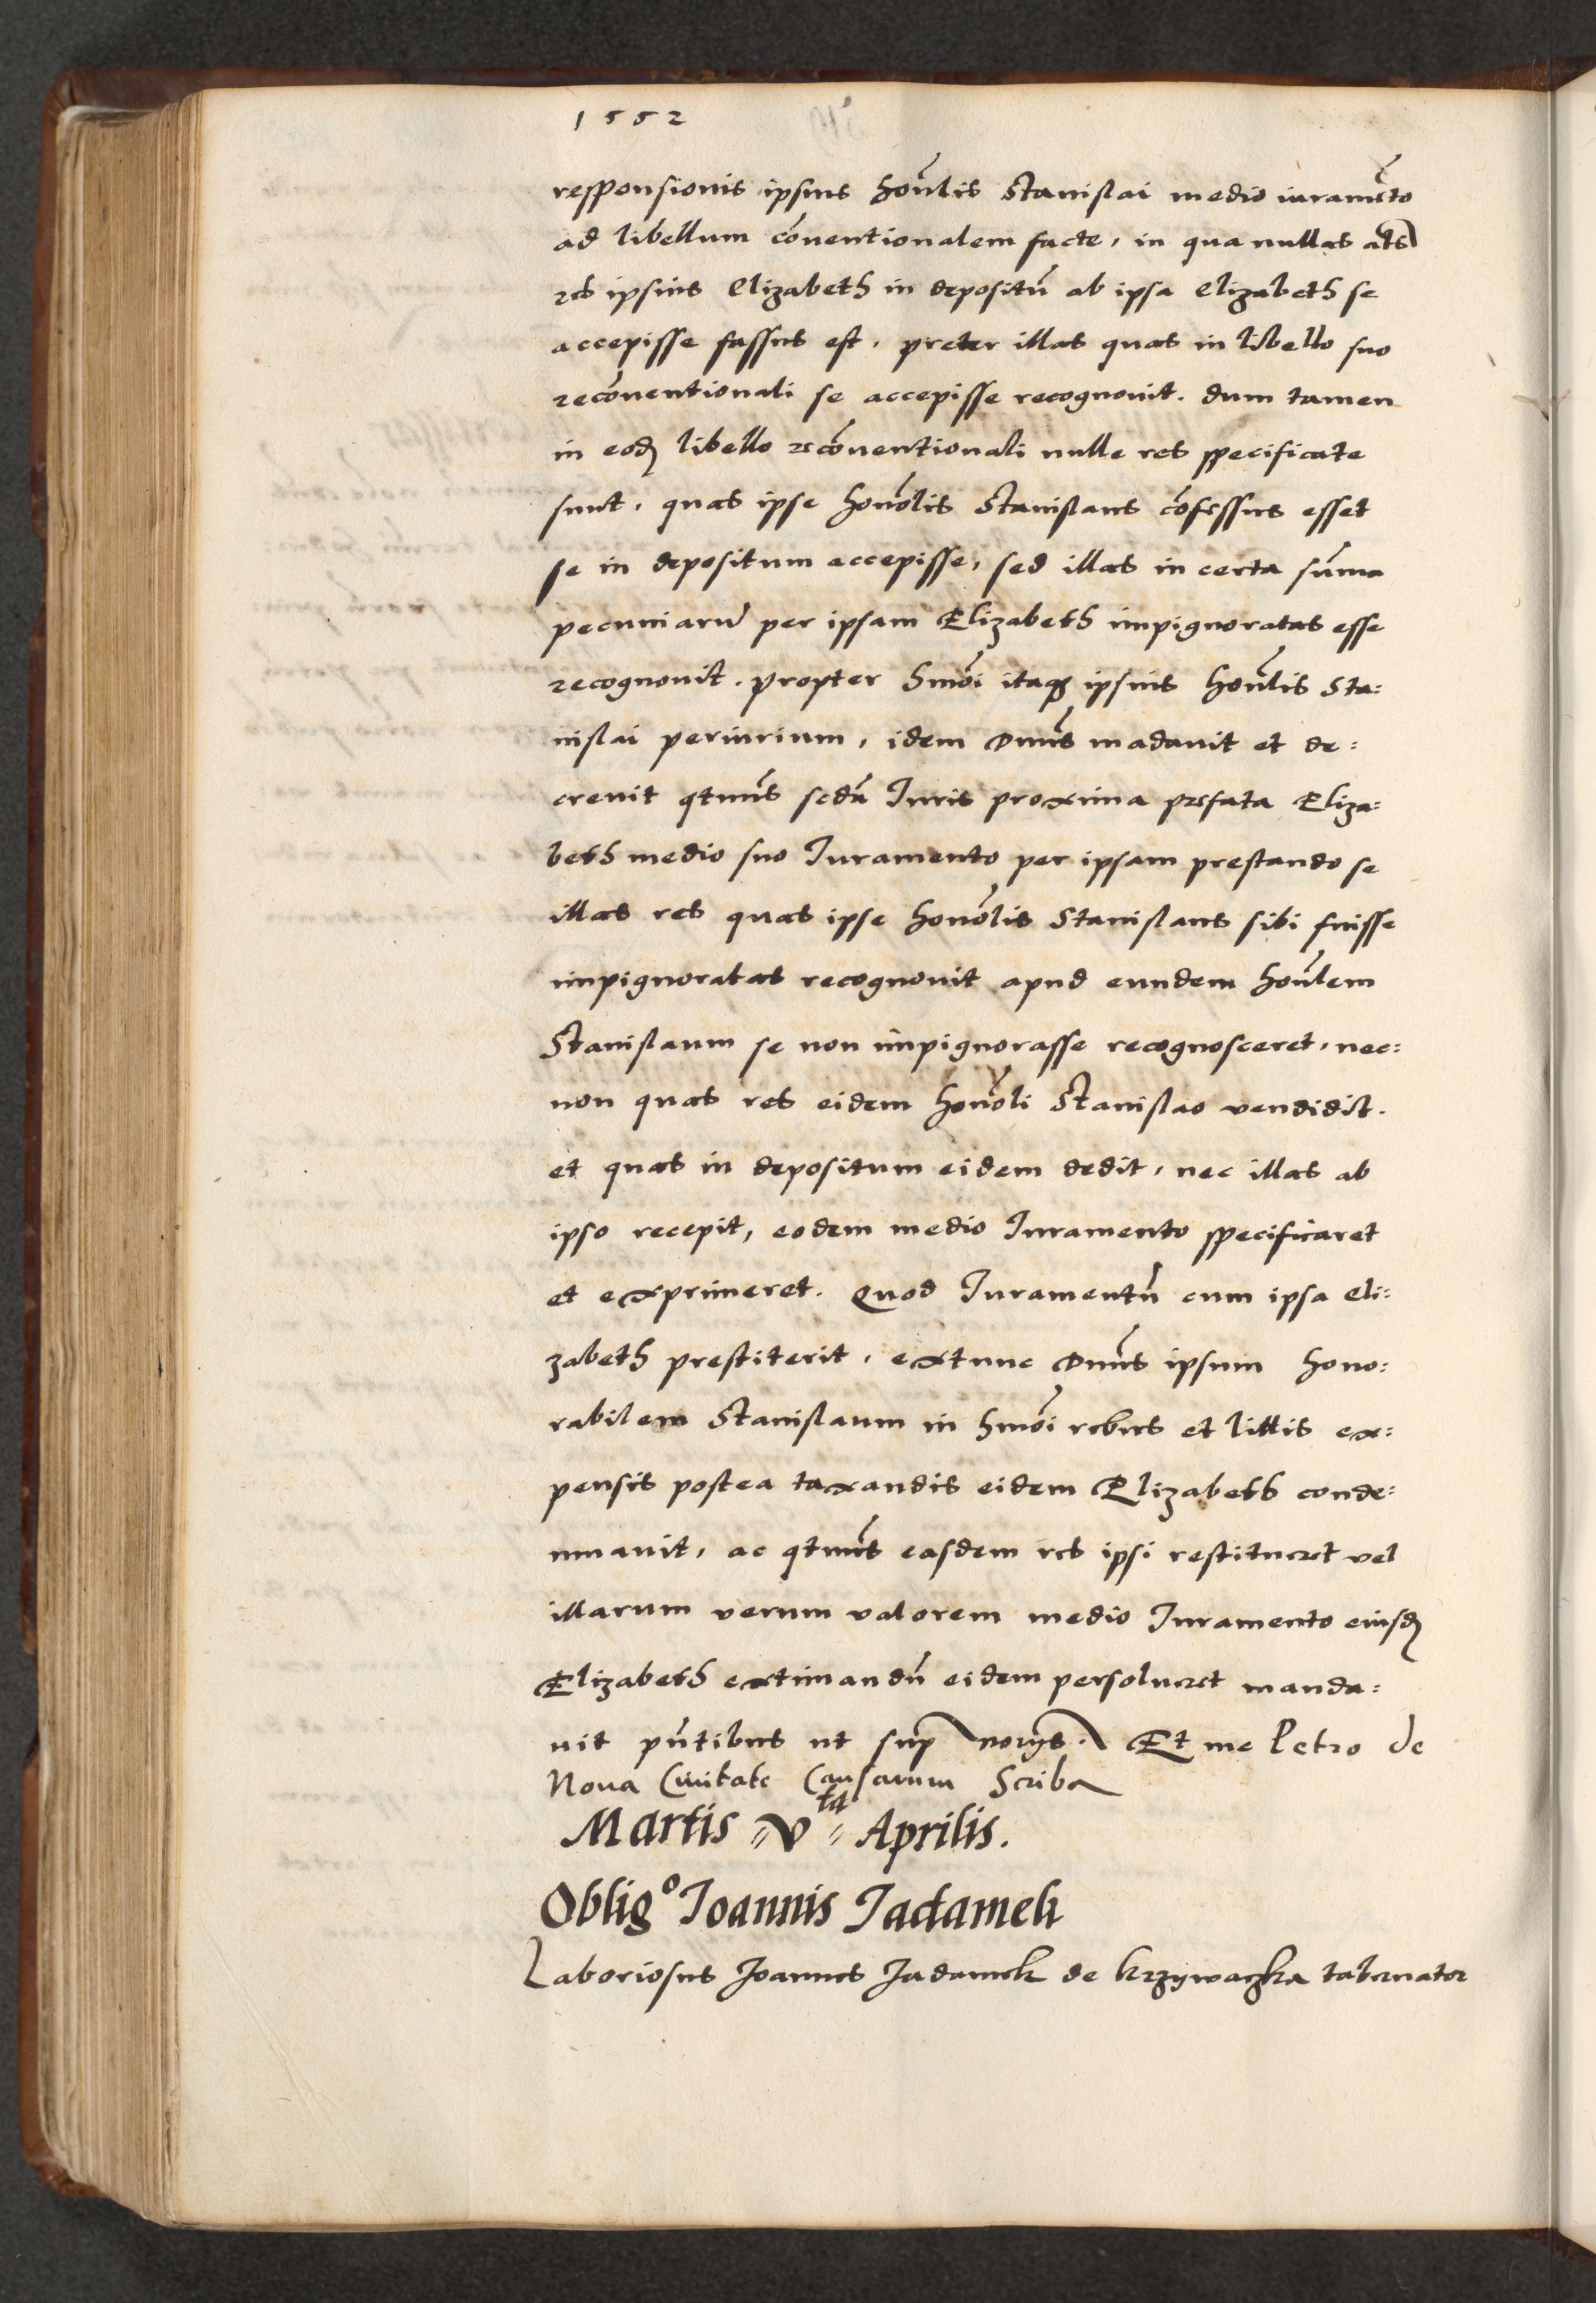 1552
responsionis ipsius hon̄lis Stanislai medio iuramēto
ad libellum cōventionalem facte, in qua nullas al̄s
res ipsius Elizabeth in depositū ab ipsa Elizabeth se
accepisse fassus est, preter illas quas in libello suo
recōventionali se accepisse recognovit. dum tamen
in eod libello recōventionali nulle res specificate
sunt, quas ipse honōlis Stanislaus cōfessus esset
se in depositum accepisse, sed illas in certa sūma
pecuniarū per ipsam Elizabeth impignoratas esse
recognovit. propter hmōi itaq ipsius hon̄lis Sta:
nislai periurium, idem Dnūs mādavit et de:
crevit qtnūs scdā Iuris proxima prefata Eliza:
beth medio suo Iuramento per ipsam prestando se
illas res quas ipse honōlis Stanislaus sibi fuisse
impignoratas recognovit apud eundem hon̄lem
Stanislaum se non impignorasse recognosceret, nec:
non quas res eidem honōli Stanislao vendidit.
et quas in depositum eidem dedit, nec illas ab
ipso recepit, eodem medio Iuramento specificaret
et exprimeret. Quod Iuramentū cum ipsa Eli:
zabeth prestiterit, extunc Dnūs ipsum hono:
rabilem Stanislaum in hmōi rebus et littis ex:
pensis postea taxandis eidem Elizabeth conde:
mnavit, ac qtnūs easdem res ipsi restitueret vel
illarum verum valorem medio Iuramento eiusd
Elizabeth extimandū eidem persolueret manda:
vit pn̄tibus ut sup norijs. Et me Petro de
Nova Civitate Causarum Scriba
Martis V ta Aprilis.
Oblig° Joannis Jadamek
Laboriosus Joannes Jadamek de Krzywaczka tabernator